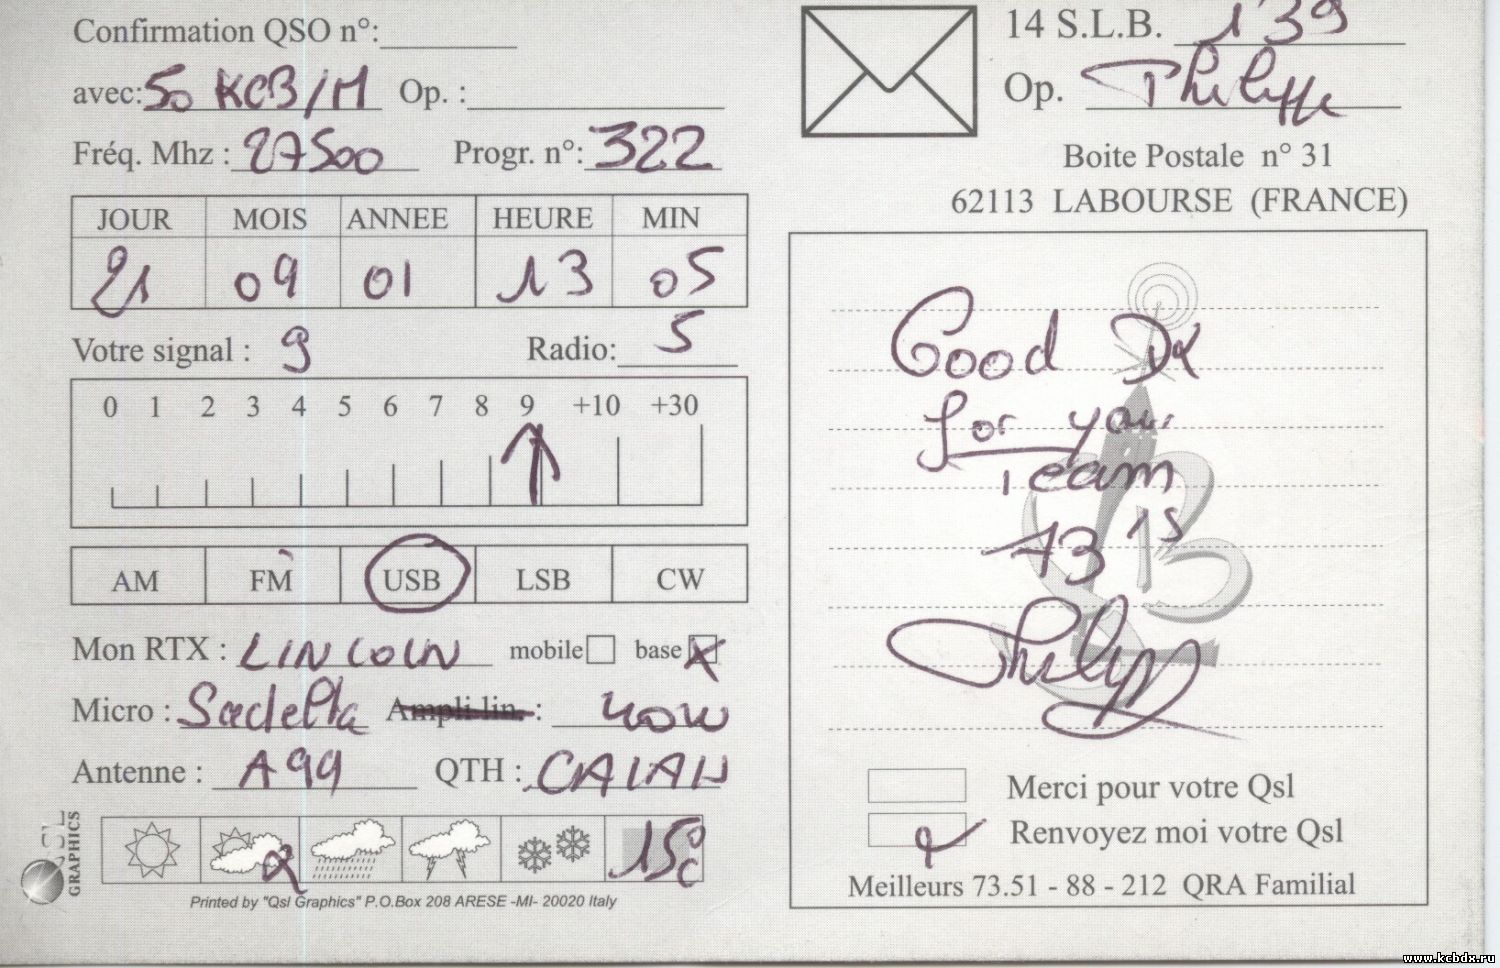 Confirmation QSO n°:
avec: 50 KCB/M Op. :
Fréq. Mhz : 27500 Progr. n°: 322
JOUR MOIS ANNEE HEURE MIN
21 09 01 13 05
Votre signal : 9 Radio: 5
0 1 2 3 4 5 6 7 8 9 +10 +30
AM FM USB LSB CW
Mon RTX : LINCOLN mobile base X
Micro : Sadelta Ampli lin. : 40W
Antenne : A99 QTH :
15°C
QSL GRAPHICS
Printed by "Qsl Graphics" P.O.Box 208 ARESE -MI- 20020 Italy
14 S.L.B. 139
Op. Philippe
Boite Postale n° 31
62113 LABOURSE (FRANCE)
Good Dx
for your
Team
73's
Merci pour votre Qsl
Renvoyez moi votre Qsl
Meilleurs 73.51 - 88 - 212 QRA Familial
www.kcbdx.ru